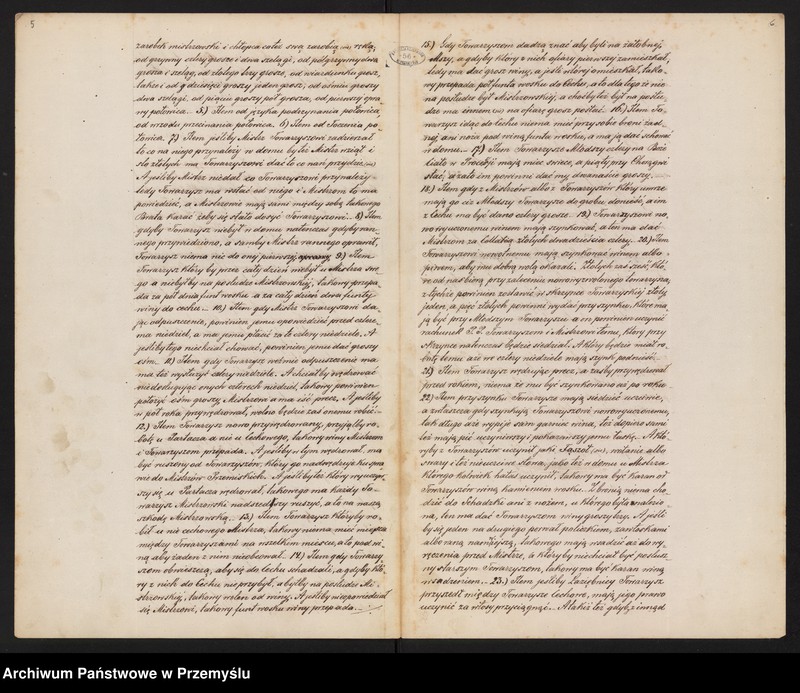 5
zarobek mistrzowski i chłopca coteż swą zarobią (sic) ręką,
od grzywny cztery grosze i dwa szelągi, od półgrzywny dwa
grosza i szeląg, od złotego trzy grosze, od wiardunku grosz,
także i od 9 dziesięć groszy jeden grosz, od ośmiu groszy
dwa szelągi, od pięciu groszy pół grosza, od pierwszy
półwica. 5.) Item od języka podrzynania półwica,
od wrzodu przecinania półwica. 6) Item od toczenia po
łowica. 7.) Item jeśliby Mistr Towarzyszowi zadzierżał
to co na niego przynależy w domu byłeś Mistr wziął i
sto złotych ma Towarzyszowi dać to co nań przydzie (sic)
A jeśliby Mistr niedał co Towarzyszowi przynależy
tedy Towarzysz ma wstać od niego i Mistrzom to ma
powiedzieć, a Mistrzowie mają sami między sobą takowego
Brata karać żeby się stało dosyć Towarzyszowi. 8.) Item
gdyby Towarzysz niebył w domu natenczas gdyby ran-
nego przywiedziono, a samby Mistrz rannego oprawił,
Towarzysz niema nic do onej pierwszej oprawy 9.) Item
Towarzysz który by przez cały dzień niebył u Mistrza swe
go a niebyłby na posłudze Mistrzowskiej, takowy przepa
da za pół dnia funt wosku a za cały dzień dwa funty
winy do cechu. 10.) Item gdy Mistr Towarzyszowi da-
jąc odpuszczenie, powinien jemu opowiedzieć przed cztere-
ma niedziel, a ma jemu płacić za te cztery niedziele. A
jeśliby tego niechciał chować, powinien jemu dać groszy
ośm. 11.) Item gdy Towarzysz weźmie odpuszczenie ma
ma też wysłużyć cztery niedziele. A chciałby wędrować
niedosługując onych czterech niedziel, takowy powinien
położyć ośm groszy Mistrzowi a ma iść precz. A jeśliby
w pół roka przywędrował, wolno będzie zaś onemu robić.
12.) Item Towarzysz nowo przywędrowany, przyjąłby ro-
botę u Partacza a nie u Cechowego, takowy winy Mistrzom
i Towarzyszom przepada. A jeśliby w tym wędrował, ma
być ruszony od Towarzyszów, który go nadwędruje ku pra
wie do Mistrzów Przemiskich. A jeśliby też który wyuczy-
szy się u Partacza wędrował, takowego ma każdy To-
warzysz Mistrzowski nadszedszy ruszyć, a to na naszą
szkodę Mistrzowską. 13.) Item Towarzysz któryby ro-
bił u nie cechowego Mistrza, takowy niema mieć miejsca
między Towarzyszami na wszelkim miejscu, ale pod wi-
ną aby żaden z nim nieobcował. 14.) Item gdy Towarzy-
szom obwieszczą, aby się do Cechu schadzali, a gdyby któ-
ry z nich do Cechu nieprzybył, a byłby na posłudze Mi-
strzowskiej, takowy wolen od winy. A jeśliby nieopowiedział
się Mistrzowi, takowy funt wosku winy przepada.
6
15.) Gdy Towarzyszom dadzą znać aby byli na żałobnej
Mszy, a gdyby który z nich ofiary pierwszy zamieszkał,
tedy ma dać grosz winy, a jeśli wtórej omieszkał, tako-
wy przepada pół funta wosku do Cechu, a to dla tego że nie
na posłudze był Mistrzowskiej, a choćby też był na posłu-
dze ma onemu (sic) na ofiarę grosz posłać. 16.) Item To-
warzysz idąc do Cechu niema mieć przy sobie broni żad-
nej ani noża pod winą funta wosku, a mają dać schować
w domu. 17.) Item Towarzysze Młodszy cztery na Boże
Ciało w Procesji mają mieć świece, a piąty przy Chorągwi
stać, a za to im powinni dać my dwanaście groszy.
18.) Item gdy z Mistrzów albo z Towarzyszów który umrze
mają go ciż Młodszy Towarzysze do grobu donieść, a im
z Cechu ma być dano cztery grosze. 19.) Towarzyszowi no
wowyuczonemu winem mają szynkować, a ten ma dać
Mistrzom za kollacją złotych dwadzieścia cztery. 20.) Item
Towarzyszowi nowotnemu mają szynkować winem albo
piwem, aby mu dobrą wolą okazali. Złotych zaś sześć któ-
re od nas biorą przy zaleceniu nowowyzwolonego towarzysza,
z tychże powinien zostawić w skrzynce Towarzyskiej złoty
jeden, a pięć złotych powinni wydać przy szynku, które ma
ją być przy Młodszym Towarzyszu a on powinien uczynić
rachunek P. P. Towarzyszom i Mistrzowi temu, który przy
skrzynce natenczas będzie siedział. A który będzie miał ro-
botę temu aż we cztery niedziele mają szynk podnosić.
21.) Item Towarzysz wędrując precz, a zasby przywędrował
przed rokiem, niema że mu być szynkowano aż po roku.
22.) Item przy szynku Towarzysze mają siedzieć uczciwie,
a zwłaszcza gdy szynkują Towarzyszowi nowowyuczonemu,
tak długo aże wypije sam garniec wina, też dopiero sami
też mają pić uczyniwszy i pokazawszy jemu łaskę. A któ-
ryby z Towarzyszów uczynił jaki Gązot (sic), wołanie albo
swary i też nieuczciwe słowa, jako też w domu u Mistrza
któregokolwiek hałas uczynił, takowy ma być karan od
Towarzyszów winą kamieniem wosku. Z bronią niema cho-
dzić do Schadzki ani z nożem, u któregoby ta naleziono,
na, ten ma dać Towarzyszom winy groszy trzy. A jeśli
by się jeden na drugiego porwał policzkiem, zawłoskami
albo raną namężyzą, takowego mają wsadzić aż do wy-
ręczenia przed Mistrze, a któryby niechciał być posłusz-
ny starszym Towarzyszom, takowy ma być karan winą
wsadzeniem. 23.) Item jeśliby Łaziębnicy Towarzysz
przyszedł między Towarzysze Cechowe, mają jego prawo
uczynić za włosy przyciągnąć. A także też gdyby z inąd
Archiwum Państwowe w Przemyślu